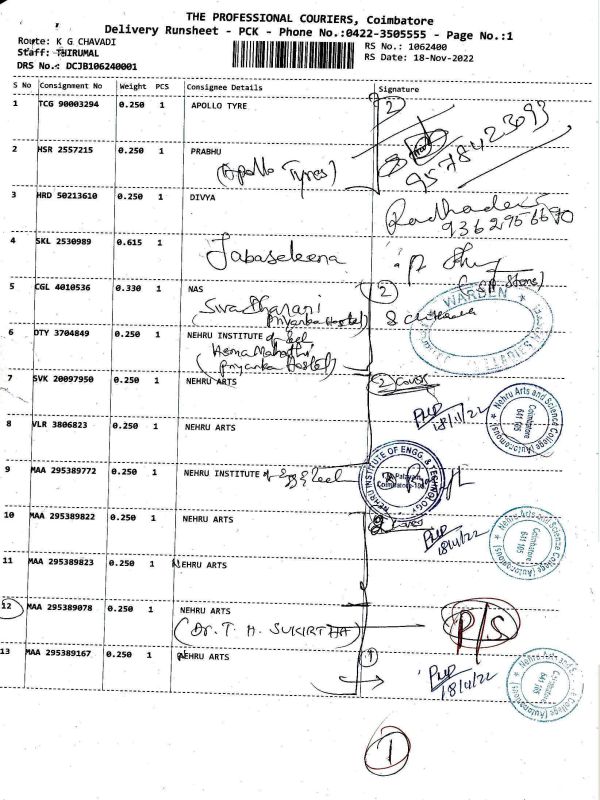 THE PROFESSIONAL COURIERS, Coimbatore
Delivery Runsheet - PCK - Phone No.:0422-3505555 - Page No.:1
Route: K G CHAVADI
Staff: THIRUMAL
DRS No.: DCJB106240001
RS No.: 1062400
RS Date: 18-Nov-2022
S No Consignment No Weight PCS Consignee Details Signature
1 TCG 90003294 0.250 1 APOLLO TYRE 2
2 HSR 2557215 0.250 1 PRABHU
(Apollo Tyres)
9578423693
3 HRD 50213610 0.250 1 DIVYA
9362956690
4 SKL 2530989 0.615 1
Jabaseleena
5 CGL 4010536 0.330 1 NAS 2
Sivadharani
(Priyanka Hostel)
WARDEN
LADIES
6 DTY 3704849 0.250 1 NEHRU INSTITUTE of
(Priyanka Hostel)
7 SVK 20097950 0.250 1 NEHRU ARTS 2
18/11/22
Nehru Arts and Science College (Autonomous)
Coimbatore
641 105
8 VLR 3806823 0.250 1 NEHRU ARTS
9 MAA 295389772 0.250 1 NEHRU INSTITUTE of Engg & Tech
NEHRU INSTITUTE OF ENGG. & TECHNOLOGY
Coimbatore-105
10 MAA 295389822 0.250 1 NEHRU ARTS
18/11/22
Nehru Arts and Science College (Autonomous)
Coimbatore
641 105
11 MAA 295389823 0.250 1 NEHRU ARTS
12 MAA 295389078 0.250 1 NEHRU ARTS
(Dr. T. H. SUKIRTHA)
P/S
13 MAA 295389167 0.250 1 NEHRU ARTS 1
18/11/22
Coimbatore
641 105
1